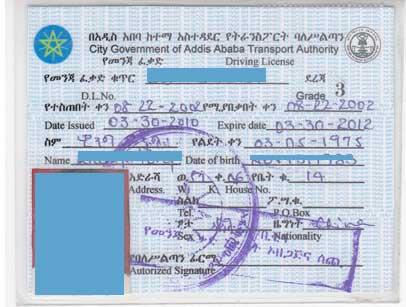 በአዲስ አበባ ከተማ አስተዳደር የትራንስፖርት ባለሥልጣን
City Government of Addis Ababa Transport Authority
የመንጃ ፈቃድ Driving License
የመንጃ ፈቃድ ቁጥር ደረጃ
D.L.No. Grade 3
የተሰጠበት ቀን 08-22-2002 የሚያበቃበት ቀን 08-22-2002
Date Issued 03-30-2010 Expire date 03-30-2012
ስም የልደት ቀን 03-05-1975
Name Date of birth
አድራሻ ወ. ቀ. የቤት ቁ. 14
Address. W. K. House No.
ስልክ ፖ.ሣ.ቁ.
Tel. P.O.Box
ፆታ ዜግነት China
Sex Nationality
የባለሥልጣን ፊርማ
Autorized Signature